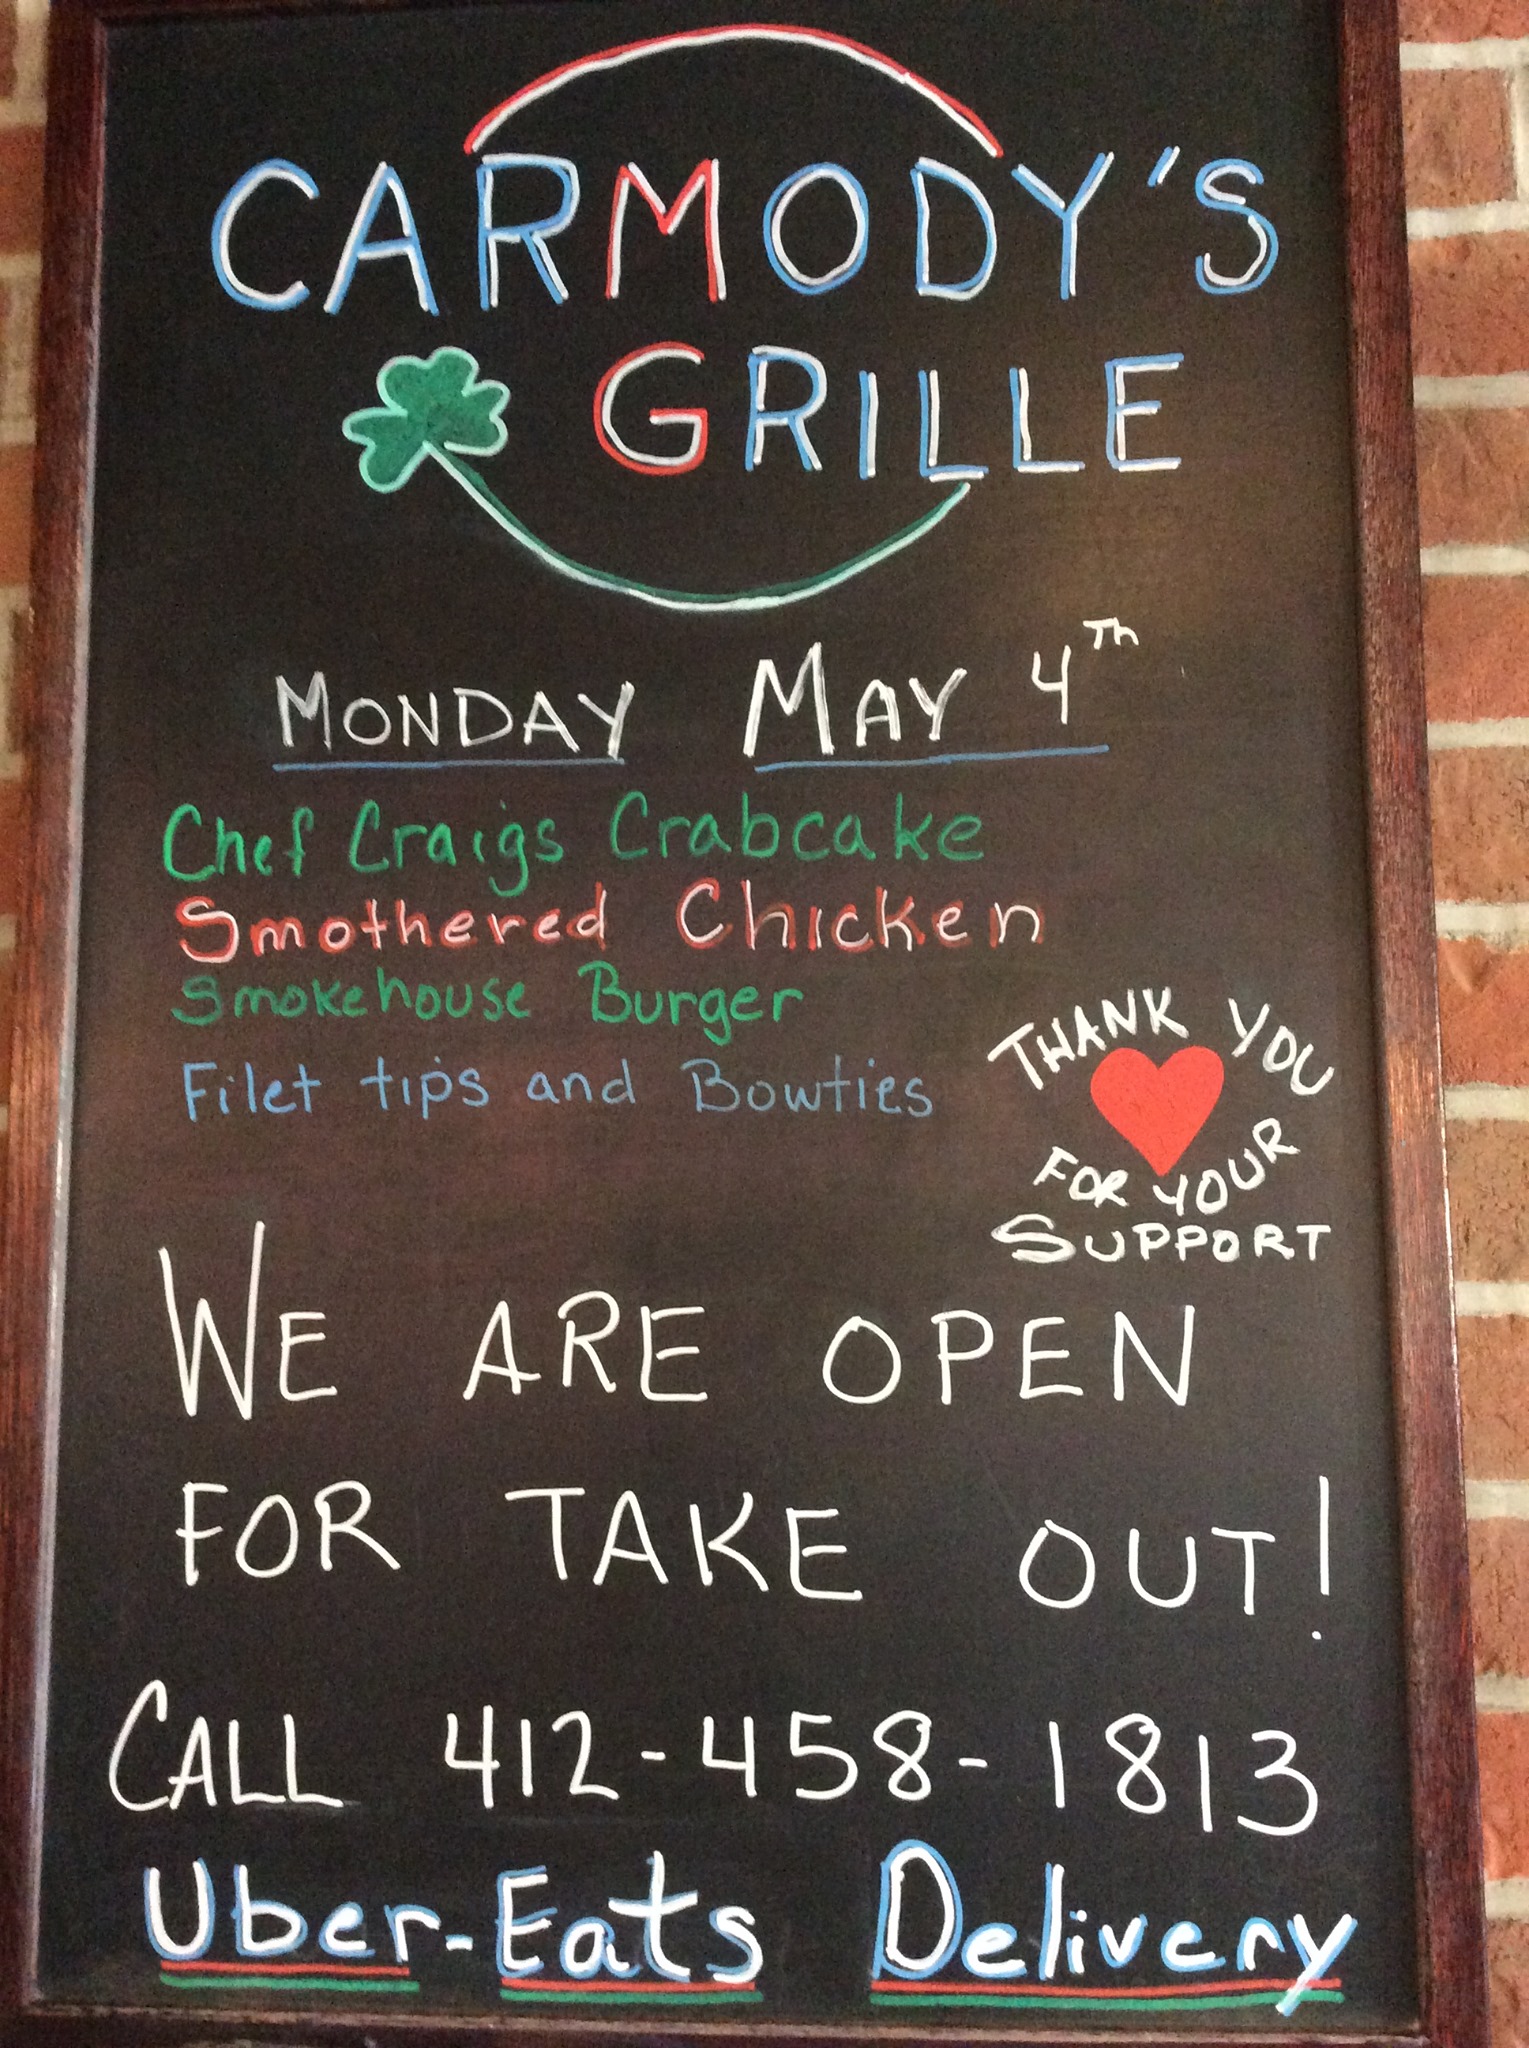 CARMODY'S
GRILLE
MONDAY MAY 4Th
Chef Craigs Crabcake
Smothered Chicken
Smokehouse Burger
Filet tips and Bowties
THANK YOU
FOR YOUR
SUPPORT
WE ARE OPEN
FOR TAKE OUT!
CALL 412-458-1813
Uber-Eats Delivery